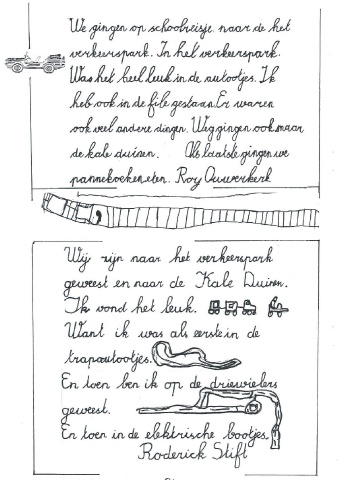 We gingen op schoolreisje naar de het
verkeerspark. In het verkeerspark.
Was het heel leuk in de autootjes. Ik
heb ook in de file gestaan. Er waren
ook veel andere dingen. Weg gingen ook naar
de kale duinen. Als laatste gingen we
pannekoeken eten. Roy Ouwerkerk
Wij zijn naar het verkeerspark
geweest en naar de Kale Duinen.
Ik vond het leuk.
Want ik was als eerste in de
trapautootjes.
En toen ben ik op de driewielers
geweest.
En toen in de elektrische bootjes.
Roderick Stift